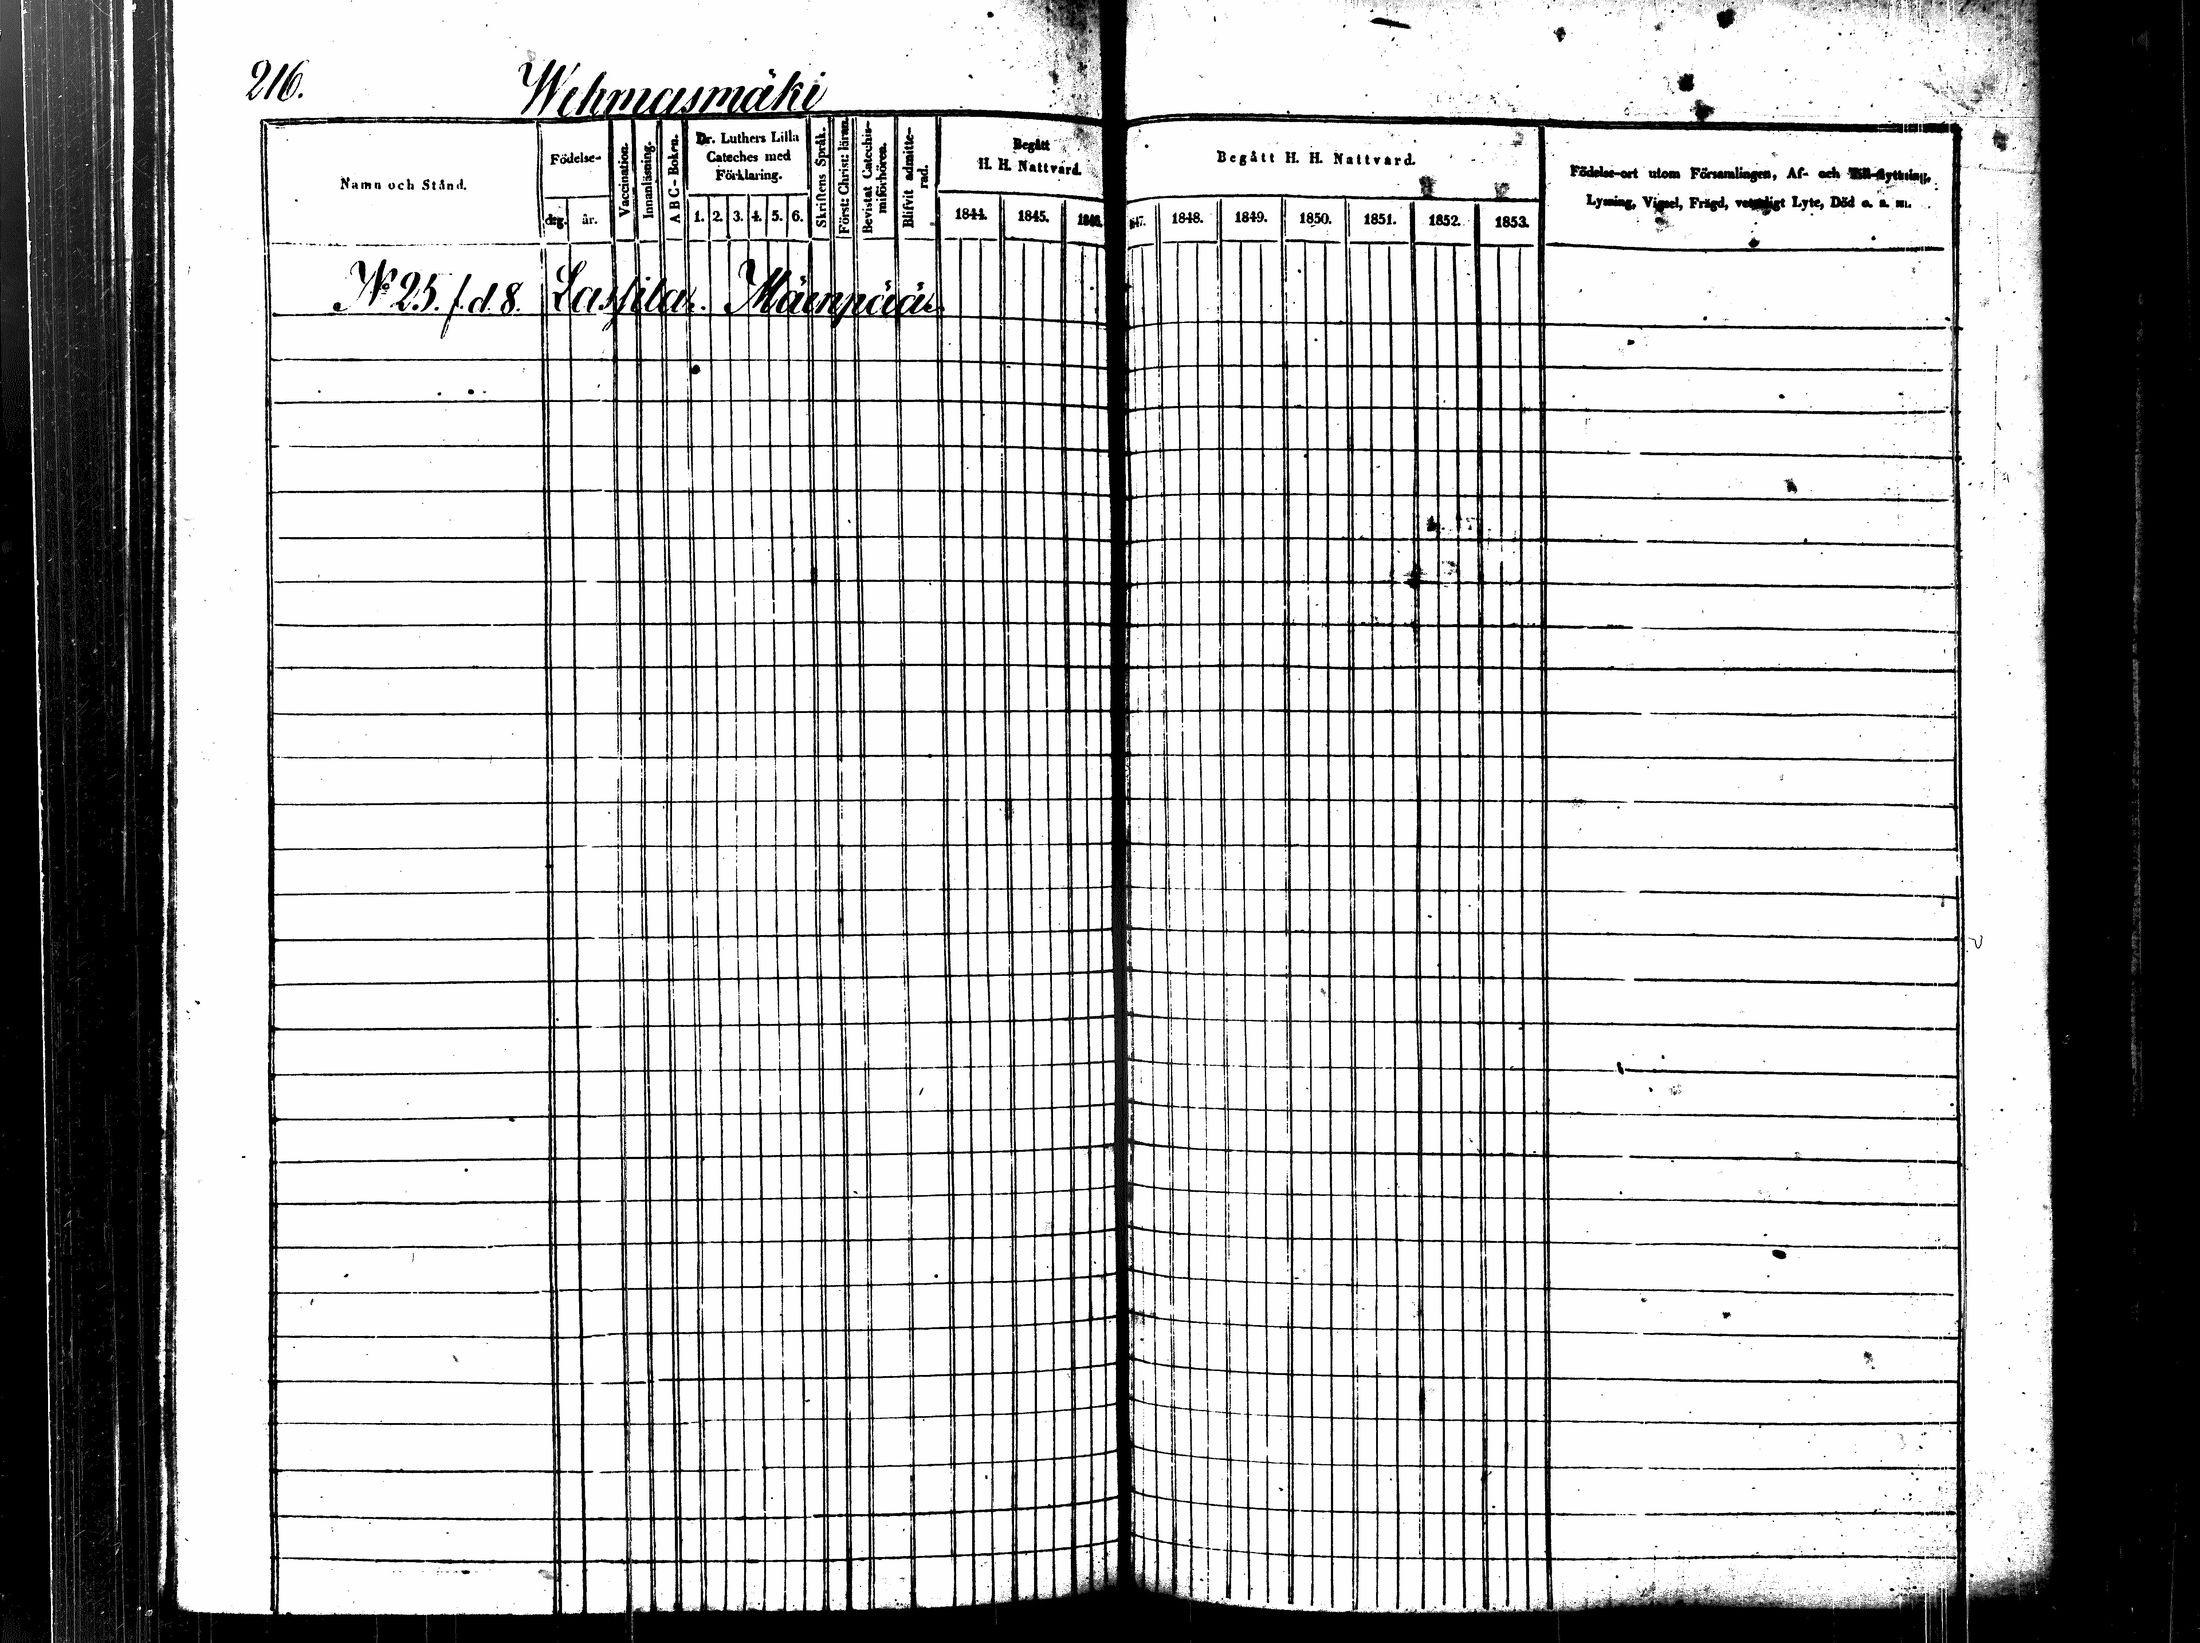 216. Wehmasmäki
Namn och Stånd.
Födelse-
dag. år.
Vaccination.
Innanläsning.
A B C - Boken.
Dr. Luthers Lilla
Cateches med
Förklaring.
1. 2. 3. 4. 5. 6.
Skriftens Språk.
Först: Christ: läran.
Bevistat Catechis-
miförhören.
Blifvit admitte-
rad.
Begått
H. H. Nattvard.
1844. 1845. 1846.
Begått H. H. Nattvard.
47. 1848. 1849. 1850. 1851. 1852. 1853.
Födelse-ort utom Församlingen, Af- och Till-flyttning,
Lysning, Vigsel, Frägd, Lyte, Död o. s. m.
No 25. f.d. 8. Lassila. Mäenpää